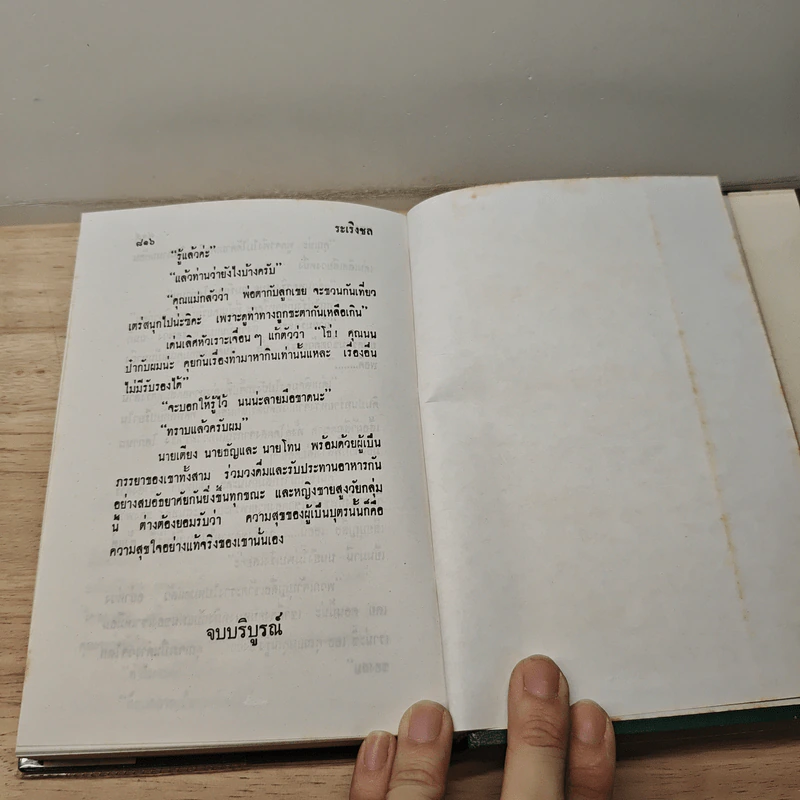 ๘๑๖
ระเริงชล
“รู้แล้วค่ะ”
“แล้วท่านว่ายังไงบ้างครับ”
“คุณแม่กลัวว่า พ่อตากับลูกเขย จะชวนกันเที่ยว
เตร่สนุกไปน่ะซิคะ เพราะดูท่าทางถูกชะตากันเหลือเกิน”
เด่นเลิศหัวเราะเจื่อนๆ แก้ตัวว่า “โธ่! คุณนน
ป๋ากับผมน่ะ คุยกันเรื่องทำมาหากินเท่านั้นแหละ เรื่องอื่น
ไม่มีรับรองได้”
“จะบอกให้รู้ไว้ นนน่ะลายมือขาดนะ”
“ทราบแล้วครับผม”
นายเตียง นายธัญและ นายโทน พร้อมด้วยผู้เป็น
ภรรยาของเขาทั้งสาม ร่วมวงดื่มและรับประทานอาหารกัน
อย่างสบอัธยาศัยกันยิ่งขึ้นทุกขณะ และหญิงชายสูงวัยกลุ่ม
นี้ ต่างต้องยอมรับว่า ความสุขของผู้เป็นบุตรนั้นก็คือ
ความสุขใจอย่างแท้จริงของเขานั่นเอง
จบบริบูรณ์